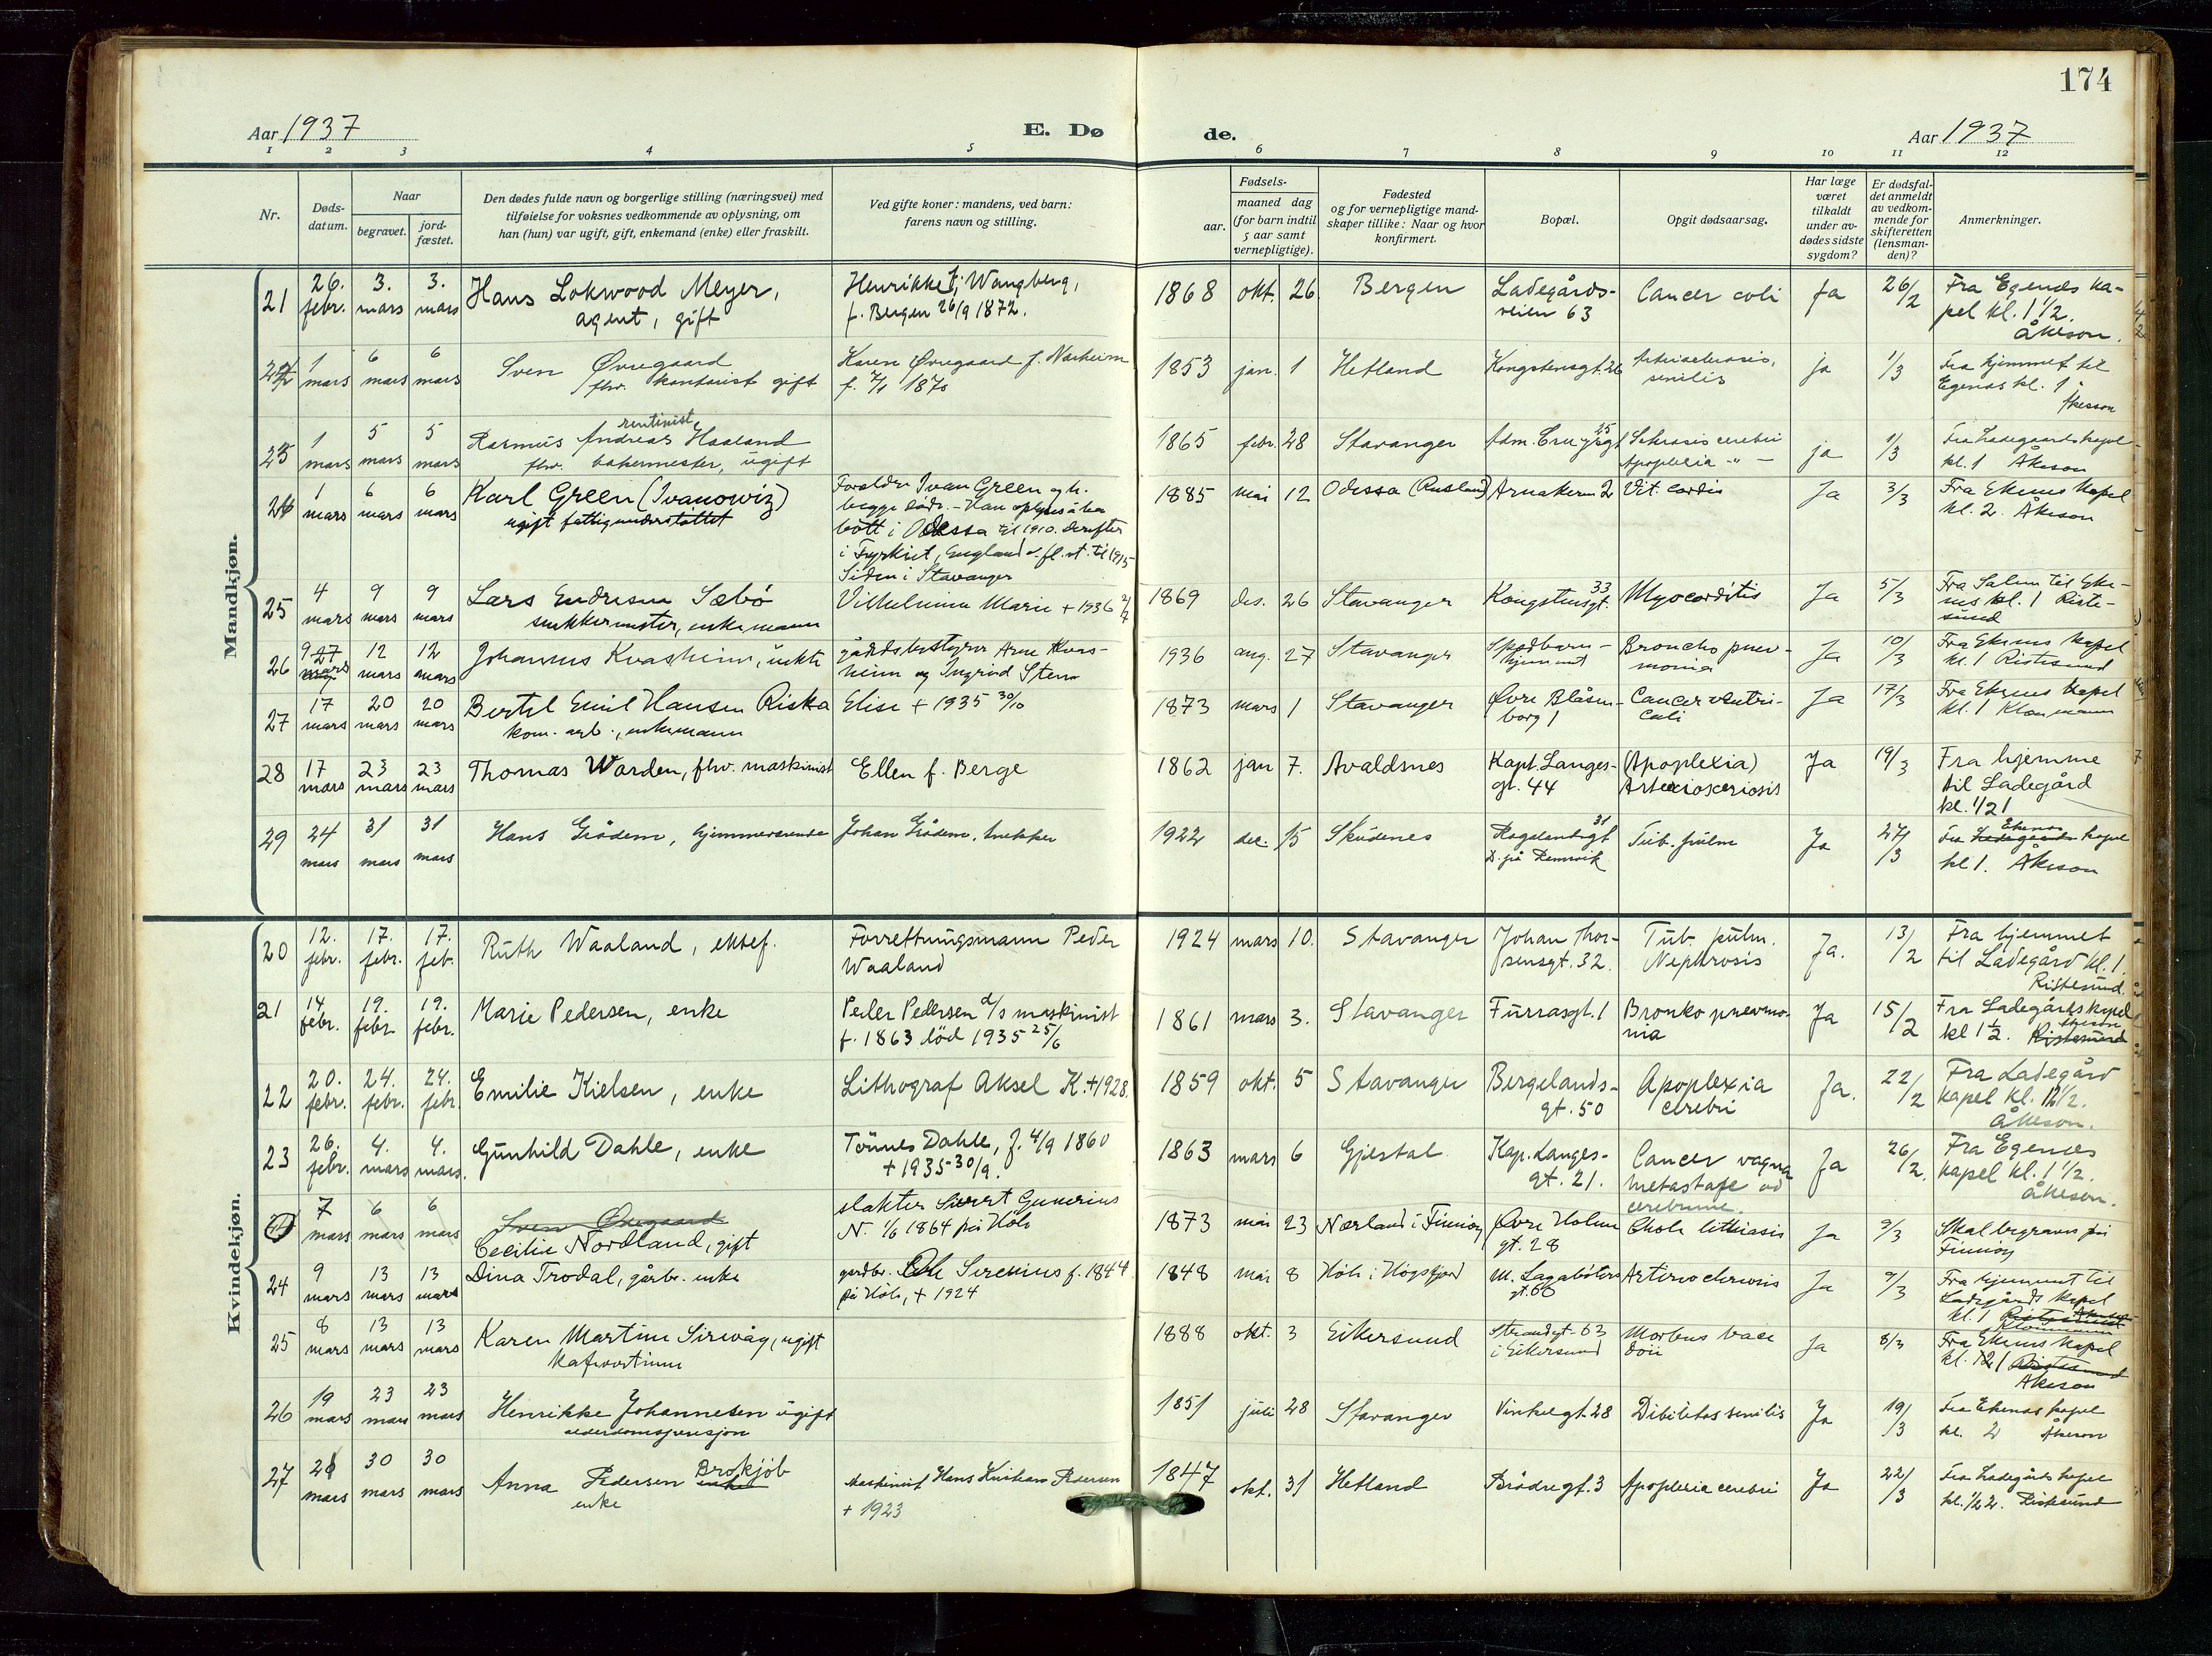 174
Aar 1937
E. Dø
de.
Aar 1937
1 2 3 4 5 6 7 8 9 10 11 12
Nr.
Døds-
datum.
Naar
begravet.
jord-
fæstet.
Den dødes fulde navn og borgerlige stilling (næringsvei) med
tilføielse for voksnes vedkommende av oplysning, om
han (hun) var ugift, gift, enkemand (enke) eller fraskilt.
Ved gifte koner: mandens, ved barn:
farens navn og stilling.
Fødsels-
aar.
maaned dag
(for barn indtil
5 aar samt
vernepligtige).
Fødested
og for vernepligtige mand-
skaper tillike: Naar og hvor
konfirmert.
Bopæl.
Opgit dødsaarsag.
Har læge
været
tilkaldt
under av-
dødes sidste
sygdom?
Er dødsfal-
det anmeldt
av vedkom-
mende for
skifteretten
(lensman-
den)?
Anmerkninger.
Mandkjøn.
21 26. febr. 3. mars 3. mars
Hans Lokwood Meyer,
agent, gift
Henrikke f. Wangberg,
f. Bergen 26/9 1872.
1868 okt. 26. Bergen
Ladegårds-
veien 63
Cancer coli
Ja 26/2
Fra Egenes ka-
pel kl. 1 1/2.
Åkeson.
22 1 mars 6 mars 6 mars
Sven Øvregaard
fhv. kontorist gift
Karen Øvregaard f. Norheim
f. 7/1 1870
1853 jan. 1 Hetland
Kongstensgt. 26
Arteriosclerosis,
senilis
ja 1/3
Fra hjemmet til
Egenes kl. 1
Åkesson
23 1 mars 5 mars 5 mars
rentenist,
Rasmus Andreas Haaland
fhv. bakermester, ugift
1865 febr. 28 Stavanger
Adm. Cruysgt 25
Sclerosis cerebri
Apoplexia -"-
ja 1/3
Fra Ladegaards kapel
kl. 1 Åkeson
24 1 mars 6 mars 6 mars
Karl Green (Ivanowiz)
ugift fattigunderstøttet
Foreldre Ivan Green og h.
begge døde. - Han oplyses å ha
bott i Odessa til 1910. derefter
i Tyrkiet, England o. fl. st. til 1915
Siden i Stavanger
1885 mai 12 Odessa (Rusland)
Arneakeren 2
Vit. cordis
Ja 3/3
Fra Ekenes kapel
kl. 2. Åkeson
25 4 mars 9 mars 9 mars
Lars Endresen Sæbö
snekkermester, enkemann
Vilhelmine Marie + 1936 2/7
1869 des. 26 Stavanger
Kongstensgt. 33
Myocarditis
Ja 5/3
Fra Salem til Eke-
nes kl. 1 Riste-
sund
26 9 mars 12 mars 12 mars
Johannes Kvasheim, ûekte
gårdsbestyrer Arne Kvas-
heim og Ingrid Sten
1936 aug. 27 Stavanger
Spedbarn-
hjemmet
Broncho pnev-
monia
Ja 10/3
Fra Ekenes kapel
kl. 1 Ristesund
27 17 mars 20 mars 20 mars
Bertel Emil Hansen Riska
kom. arb., enkemann
Elise + 1935 30/10
1873 mars 1 Stavanger
Øvre Blåsen-
borg 1
Cancer ventri-
culi
Ja 17/3
Fra Ekenes kapel
kl. 1
28 17 mars 23 mars 23 mars
Thomas Warden, fhv. maskinist
Ellen f. Berge
1862 jan 7. Avaldsnes
Kapt. Langes-
gt. 44
(Apoplexia)
Arteriosceriosis
Ja 19/3
Fra hjemme
til Ladegård
kl. 1/2 1
29 24 mars 31 mars 31 mars
Hans Grødem, hjemmeværende
Johan Grødem, snekker
1922 dec. 15 Skudenes
Rogalandsgt 31
D. på Ramsvik
Tub. pulm
Ja 27/3
Fra Ladegaards Ekenes kapel
kl 1. Åkeson
Kvindekjøn.
20 12. febr. 17. febr. 17. feb.
Ruth Waaland, ektef.
Forrettningsmann Peder
Waaland
1924 mars 10. Stavanger
Johan Thor-
sensgt. 32.
Tub. pulm.
Nephrosis
Ja. 13/2
Fra hjemmet
til Ladegård kl. 1.
Ristesund.
21 14 febr. 19. febr. 19. febr.
Marie Pedersen, enke
Peder Pedersen d/s maskinist
f. 1863 död 1935 25/6
1861 mars 3. Stavanger
Furrasgt. 1
Bronko pnevmo-
nia
Ja 15/2
Fra Ladegårdskapel
kl 1 1/2. Ristesund
Åkeson
22 20. febr. 24. febr. 24. febr
Emilie Kielsen, enke
Lithograf Aksel K. +1928.
1859 okt. 5 Stavanger
Bergelands-
gt. 50
Apoplexia
cerebri
Ja. 22/2
Fra Ladegård
kapel kl. 1 1/2.
Åkeson.
23 26. febr. 4. mars 4. mars.
Gunhild Dahle, enke
Tönnes Dahle, f. 4/9 1860
+ 1935 30/9.
1863 mars 6 Gjestal
Kap. Langes-
gt. 21.
Cancer vagina
metastase ad
cerebrum.
Ja 26/2
Fra Egenes
kapel kl. 1 1/2.
Åkeson.
7 mars 6 mars 6 mars
Sven Øvregaard
Cecilie Nordland, gift
slakter Sivert Gunerius
N. 1/6 1864 på Höle
1873 mai 23 Nærland i Finnöy
Øvre Holme
gt. 28
Chole litthiasis
Ja 9/3
Skal begraves på
Finnöy
24 9 mars 13 mars 13 mars
Dina Trodal, gårbr. enke
gardbr. Ole Serenius f. 1844
på Höle, + 1924
1848 mai 8 Höle i Högsfjord
M. Lagabøters
gt. 66
Arteriosclerosis
Ja 9/3
Fra hjemmet til
Ladegårds kapel
kl. 1
25 8 mars 13 mars 13 mars
Karen Martine Sirevåg, ugift
Kafevertinne
1888 okt. 3 Eikersund
Strandgt. 63
i Eikersund
Morbus base
dovii
Ja 8/3
Fra Ekenes kapel
kl. 12 1 Ristesund
Åkeson
26 19 mars 23 mars 23 mars
Henrikke Johannesen ugift
alderdomspensjon
1851 juli 28 Stavanger
Vinkelgt. 28
Dibilitas senilis
Ja 19/3
Fra Ekenes kapel
kl. 2 Åkeson
27 21 mars 30 mars 30 mars
Anna Pedersen Brokjöb
enke
enke
Maskinist Hans Kristian Pedersen
+ 1923
1847 okt. 31 Hetland
Brødregt. 3
Apoplexia cerebri
Ja 22/3
Fra Ladegårds kapel
kl. 1/2 2. Ristesund